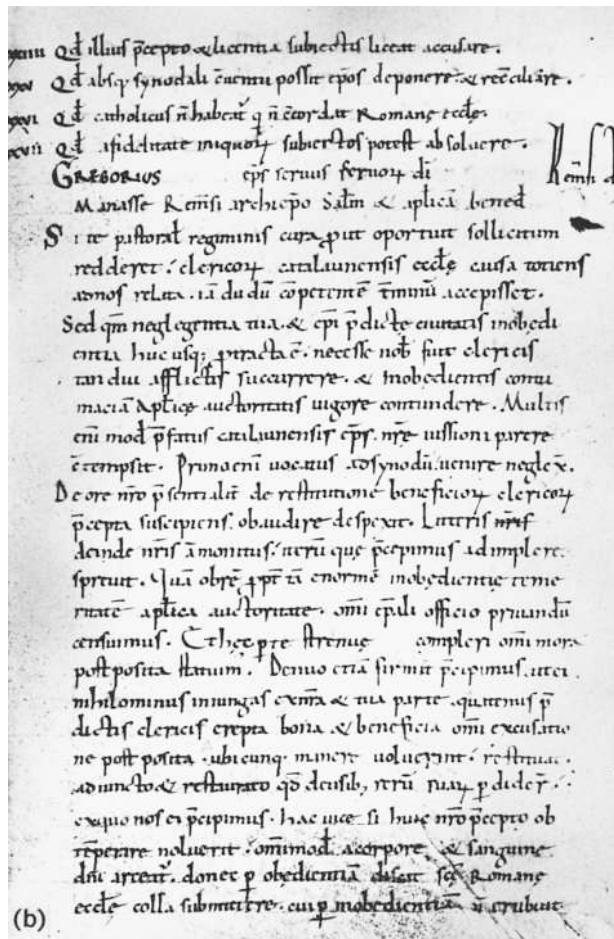 xxiiii Qd̄ illius p̄cepto & licentia subiectis liceat accusare.
xxv Qd̄ absq; synodali c̄uentu possit ep̄os deponere & rec̄ciliare.
xxvi Qd̄ catholicus n̄ habeat᷑ q n̄ c̄cordat Romanę ecclę.
xxvii Qd̄ a fidelitate iniquoꝝ subiectos potest absolvere.
GREGORIUS ep̄s servus servoꝝ dī
Manasse Rem̄si archiep̄o Sal̄m & apl̄icā bened̄
Si te pastoral̄ regiminis cura ꝓut oportuit sollicitum
redderet, clericoꝝ catalaunensis ecclę causa totiens
ad nos relata. iā dudū cōpetentē t̄minū accepisset.
Sed qm̄ neglegentia tua. & ep̄i p̄dictę civitatis inobedi
entia huc usq; ꝓtracta ē. necesse nob̄ fuit clericis
tam diu afflictis succurrere. & inobedientis contu
maciā Apl̄icę auctoritatis vigore contundere. Multis
eni mod̄ p̄fatus catalaunensis ep̄s. nr̄e iussioni parere
c̄tempsit. Primo eni vocatus ad synodū venire neglex̄.
De ore nr̄o p̄sentialit̄ de restitutione beneficioꝝ clericoꝝ
p̄cepta suscipiens. obaudire despexit. Litteris
deinde nr̄is āmonitus. iterū quę p̄cepimus adimplere
sprevit. Quā obrē ꝓpt̄ tā enormē inobędientię teme
ritatē apl̄ica auctoritate. omi ep̄ali officio privandū
censuimus. Et hęc ꝑ te strenue compleri omi mora
postposita statuim᷒. Denuo etiā firmit̄ p̄cipimus. ut ei
nihilominus iniungas ex nr̄a & tua parte. quatenus p̄
dictis clericis erepta bona & beneficia omi excusatio
ne postposita. ubicunq; manere voluerint. restituat.
adiuncto & restaurato qd̄ de usib; rerū suaꝝ ꝑdider̄.
ex quo nos ei p̄cipimus. hac vice si huic nr̄o p̄cepto ob
tēperare noluerit. omimod̄ a corpore & sanguine
dn̄i arceat᷑. donec ꝑ obędientiā discat scę Romanę
ecclę colla submittere. cui ꝑ inobedientiā n̄ erubuit
(b)